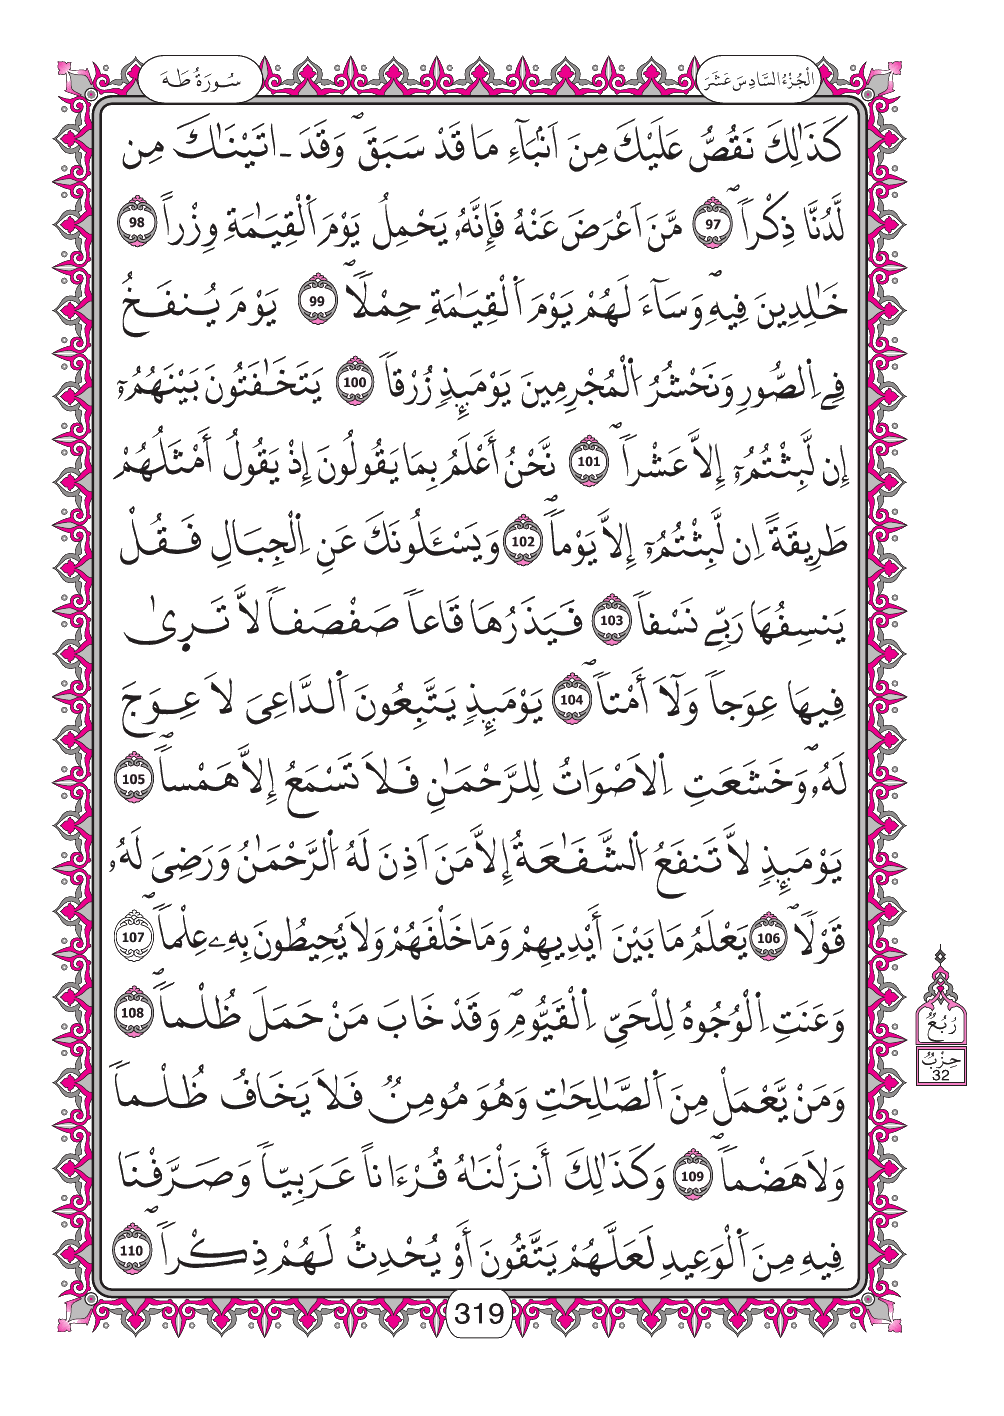 سُورَةُ طَهَ
اَلْجُزْءُ السَّادِسَ عَشَرَ
كَذَٰلِكَ نَقُصُّ عَلَيْكَ مِنَ اَنۢبَآءِ مَا قَدْ سَبَقَۖ وَقَدَ ـ اتَيْنَٰكَ مِن
لَّدُنَّا ذِكْراَۖ 97 مَّنَ اَعْرَضَ عَنْهُ فَإِنَّهُۥ يَحْمِلُ يَوْمَ اَلْقِيَٰمَةِ وِزْراً 98
خَٰلِدِينَ فِيهِۖ وَسَآءَ لَهُمْ يَوْمَ اَلْقِيَٰمَةِ حِمْلَاۖ 99 يَوْمَ يُنفَخُ
فِے اِلصُّورِ وَنَحْشُرُ اُلْمُجْرِمِينَ يَوْمَئِذٖ زُرْقاَ 100 يَتَخَٰفَتُونَ بَيْنَهُمُۥٓ
إِن لَّبِثْتُمُۥٓ إِلَّا عَشْراَۖ 101 نَّحْنُ أَعْلَمُ بِمَا يَقُولُونَ إِذْ يَقُولُ أَمْثَلُهُمْ
طَرِيقَةً اِن لَّبِثْتُمُۥٓ إِلَّا يَوْماَۖ 102 وَيَسْـَٔلُونَكَ عَنِ اِلْجِبَالِ فَقُلْ
يَنسِفُهَا رَبِّے نَسْفاَ 103 فَيَذَرُهَا قَاعاَ صَفْصَفاَ لَّا تَر۪ىٰ
فِيهَا عِوَجاَ وَلَآ أَمْتاَۖ 104 يَوْمَئِذٖ يَتَّبِعُونَ اَلدَّاعِىَ لَا عِوَجَ
لَهُۥۖ وَخَشَعَتِ اِلَاصْوَاتُ لِلرَّحْمَٰنِ فَلَا تَسْمَعُ إِلَّا هَمْساَۖ 105
يَوْمَئِذٖ لَّا تَنفَعُ اُلشَّفَٰعَةُ إِلَّا مَنَ اَذِنَ لَهُ اُلرَّحْمَٰنُ وَرَضِىَ لَهُۥ
قَوْلَاۖ 106 يَعْلَمُ مَا بَيْنَ أَيْدِيهِمْ وَمَا خَلْفَهُمْ وَلَا يُحِيطُونَ بِهِۦ عِلْماَۖ 107
وَعَنَتِ اِلْوُجُوهُ لِلْحَىِّ اِلْقَيُّومِۖ وَقَدْ خَابَ مَنْ حَمَلَ ظُلْماَۖ 108
وَمَنْ يَّعْمَلْ مِنَ اَلصَّٰلِحَٰتِ وَهُوَ مُومِنٌ فَلَا يَخَافُ ظُلْماَ
وَلَا هَضْماَۖ 109 وَكَذَٰلِكَ أَنزَلْنَٰهُ قُرْءَاناً عَرَبِيّاَ وَصَرَّفْنَا
فِيهِ مِنَ اَلْوَعِيدِ لَعَلَّهُمْ يَتَّقُونَ أَوْ يُحْدِثُ لَهُمْ ذِكْراَۖ 110
رُبُعُ
حِزْبُ
32
319